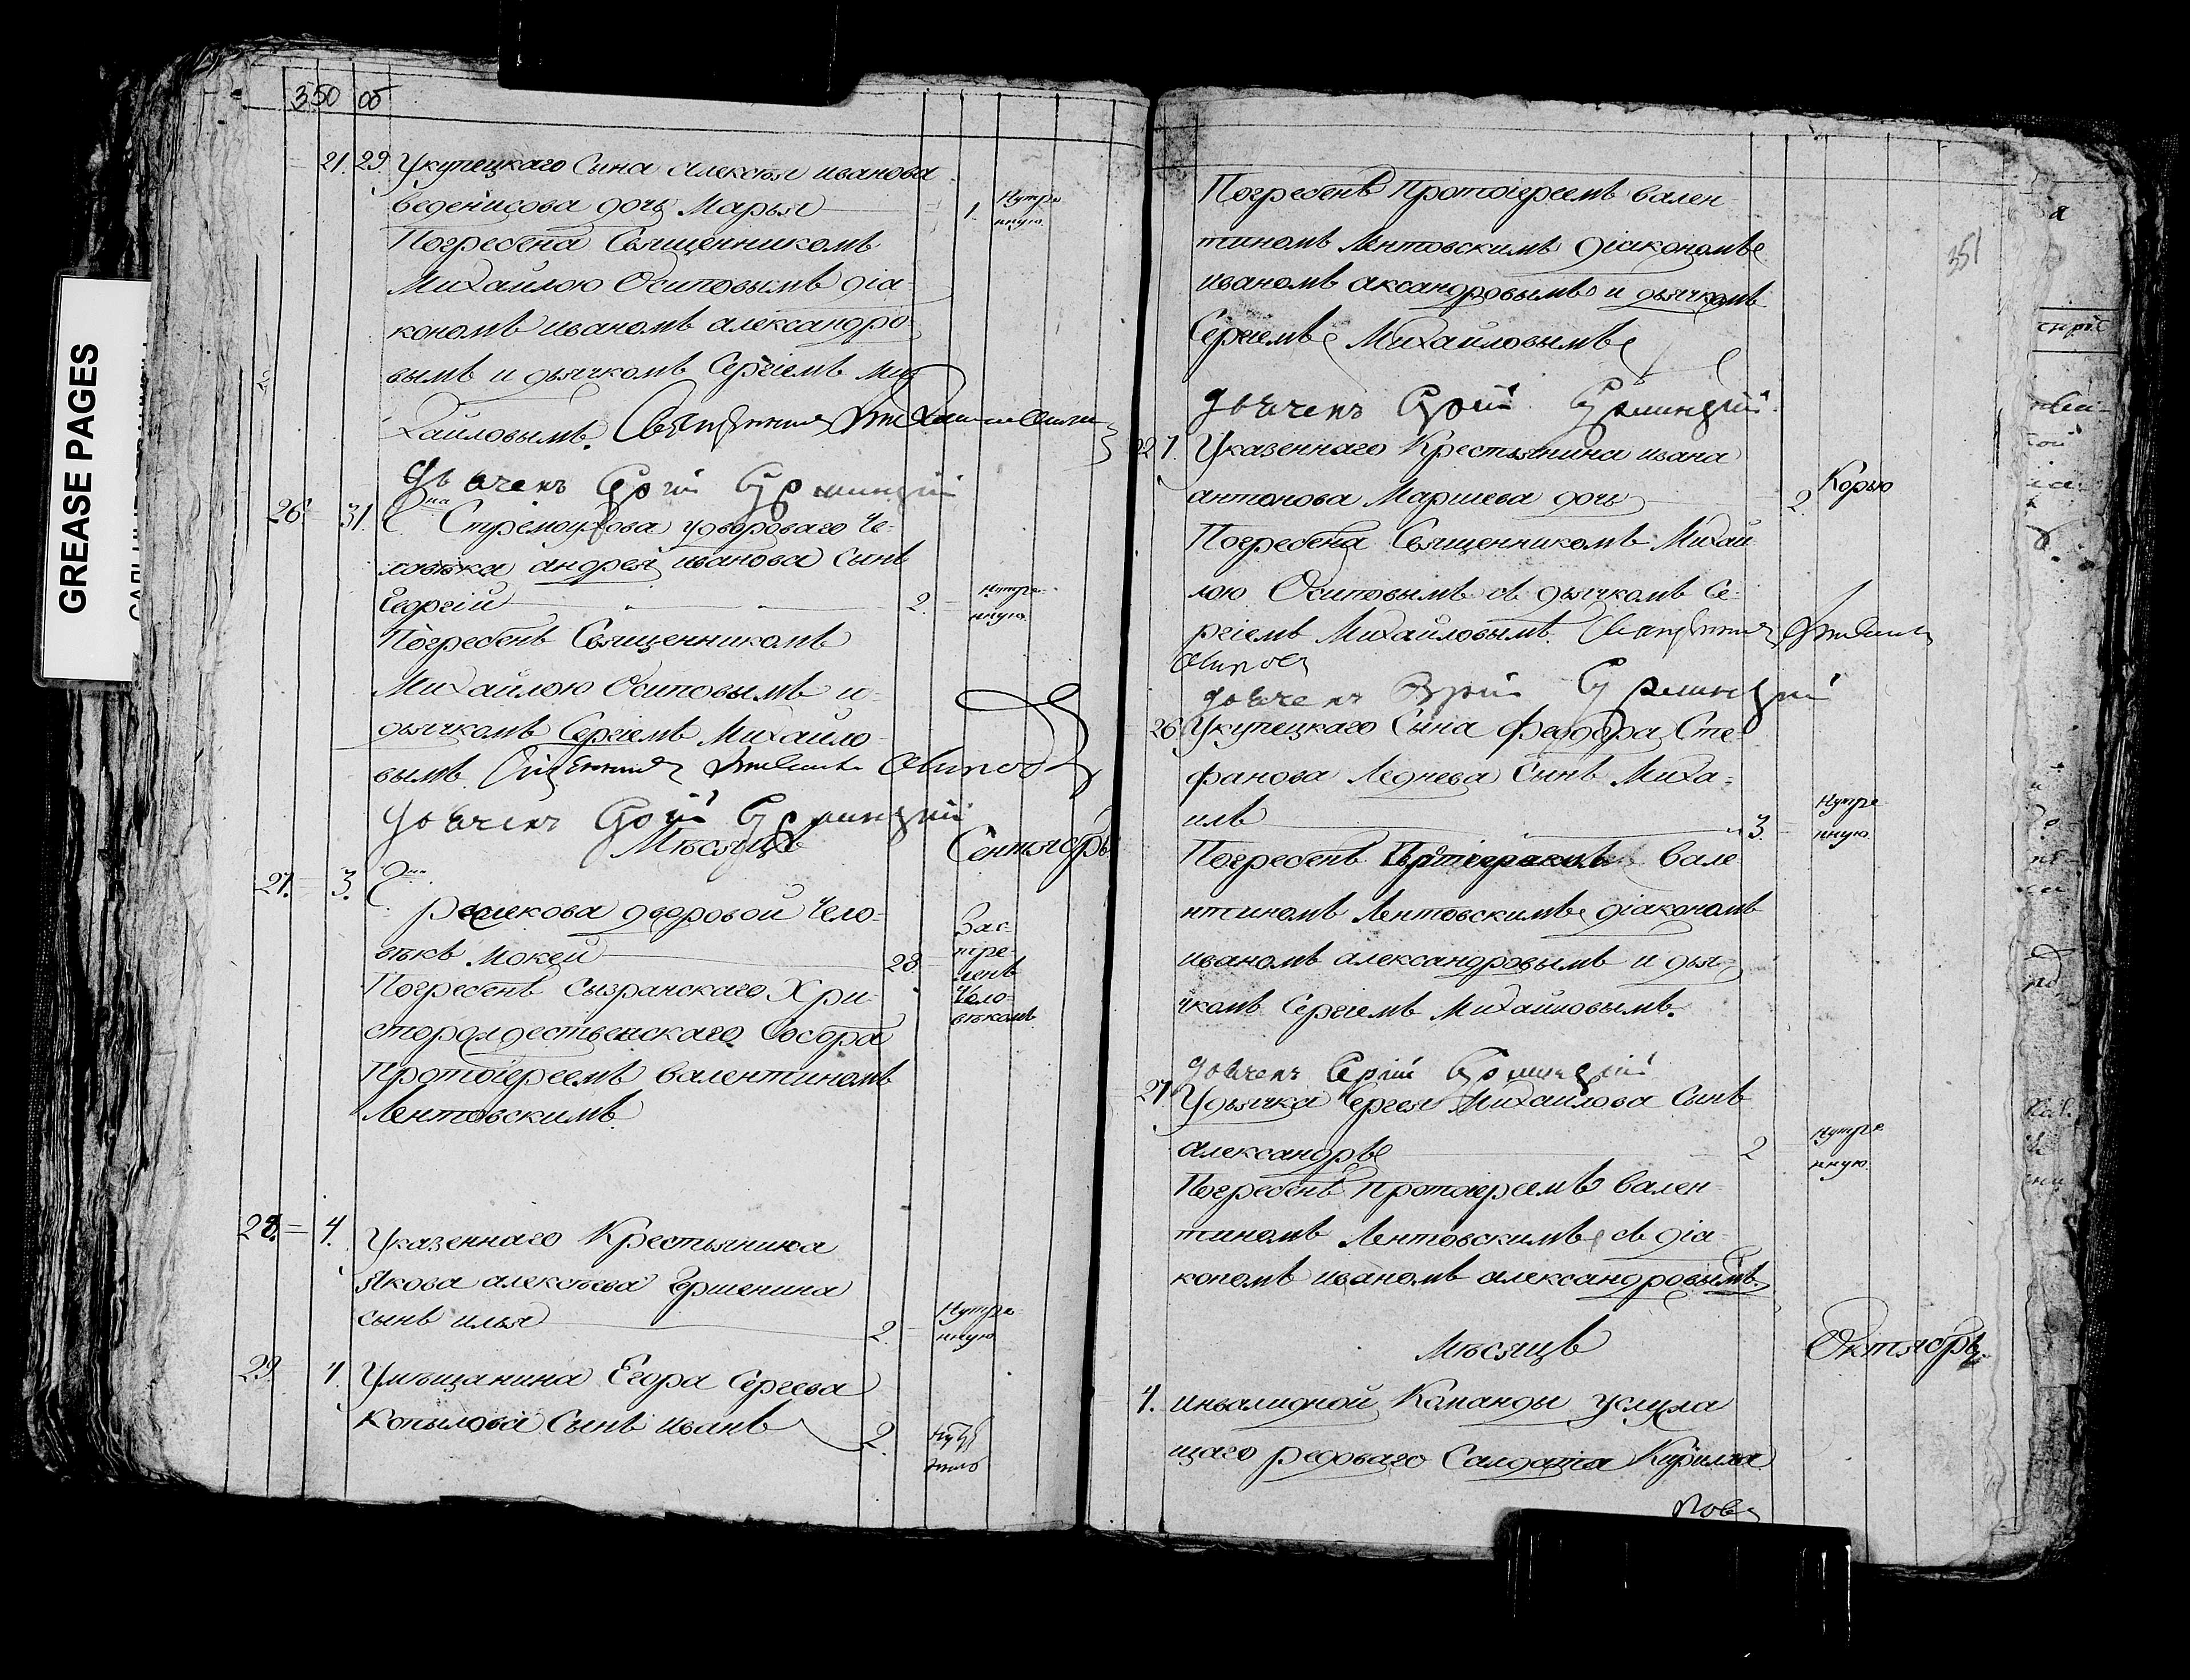 GREASE PAGES
350 об
21. 29. У купецкаго Сына алексея иванова
веденисова дочь Марья 1. Нутре
нную
Погребена Священникомъ
Михайлою Осиповымъ діа
кономъ иваномъ александро
вымъ и дьячкомъ Сергіемъ Ми
хайловымъ. Священникъ Михаилъ Осипов
дьячекъ
26. 31. Г-на Стремоухова у двороваго че
ловѣка андрея иванова сынъ
Георгій 2. нутре
нную
Погребенъ Священникомъ
Михайлою Осиповымъ и
дьячкомъ Сергіемъ Михайло
вымъ. Осипов
дьячекъ
Мѣсяцъ Сентябрь
27. 3. Г-на
дворовой чело
вѣкъ мокей 28 Зас
тре
ленъ
чело
вѣкомъ
Погребенъ сызранскаго Хри
сторождественскаго Собора
Протоіереемъ валентиномъ
Лентовскимъ
28. 4. У казеннаго Крестьянина
Якова алексѣева Ершенина
сынъ илья 2. Нутре
нную
29. 4. У мѣщанина Егора Сергеева
Копылова Сынъ иванъ 2.
351
Погребенъ Протоіереемъ вален
тиномъ Лентовскимъ діакономъ
иваномъ аксандровымъ и дьячкомъ
Сергіемъ Михайловымъ
дьячекъ
22 7. У казеннаго Крестьянина ивана
антонова Маршева дочь 2. Корью
Погребена Священникомъ Михай
лою Осиповымъ съ дьячкомъ Се
ргіемъ Михайловымъ. Священникъ Михаилъ
Осипов
дьячекъ
26 У купецкаго Сына Феодора Сте
фанова Леднева Сынъ Миха
илъ 3. Нутре
нную
Погребенъ Протоіереемъ вале
нтиномъ Лентовскимъ діакономъ
иваномъ александровымъ и дья
чкомъ Сергіемъ Михайловымъ.
дьячекъ Сергій
27. У дьячка Сергея Михайлова Сынъ
александръ 2 нутре
нную
Погребенъ Протоіереемъ вален
тиномъ Лентовскимъ съ діа
кономъ иваномъ александровымъ.
Мѣсяцъ Октябрь
4. инвалидной Команды у служа
щаго редоваго Салдата Кирилла